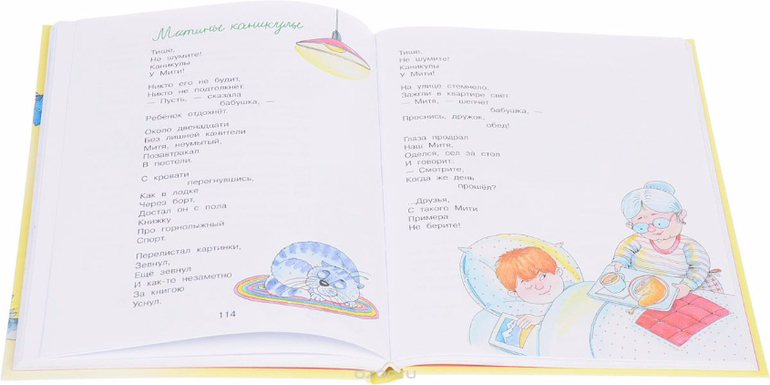 Митины каникулы
Тише,
Не шумите!
Каникулы
У Мити!
Никто его не будит,
Никто не подтолкнёт.
— Пусть, — сказала
бабушка, —
Ребёнок отдохнёт.
Около двенадцати
Без лишней канители
Митя, неумытый,
Позавтракал
В постели.
С кровати
перегнувшись,
Как в лодке
Через борт,
Достал он с пола
Книжку
Про горнолыжный
Спорт.
Перелистал картинки,
Зевнул,
Ещё зевнул
И как-то незаметно
За книгою
Уснул.
114
Тише,
Не шумите!
Каникулы
У Мити!
На улице стемнело,
Зажгли в квартире свет.
— Митя, — шепчет
бабушка, —
Проснись, дружок,
обед!
Глаза продрал
Наш Митя,
Оделся, сел за стол
И говорит:
— Смотрите,
Когда же день
прошёл?
Друзья,
С такого Мити
Примера
Не берите!